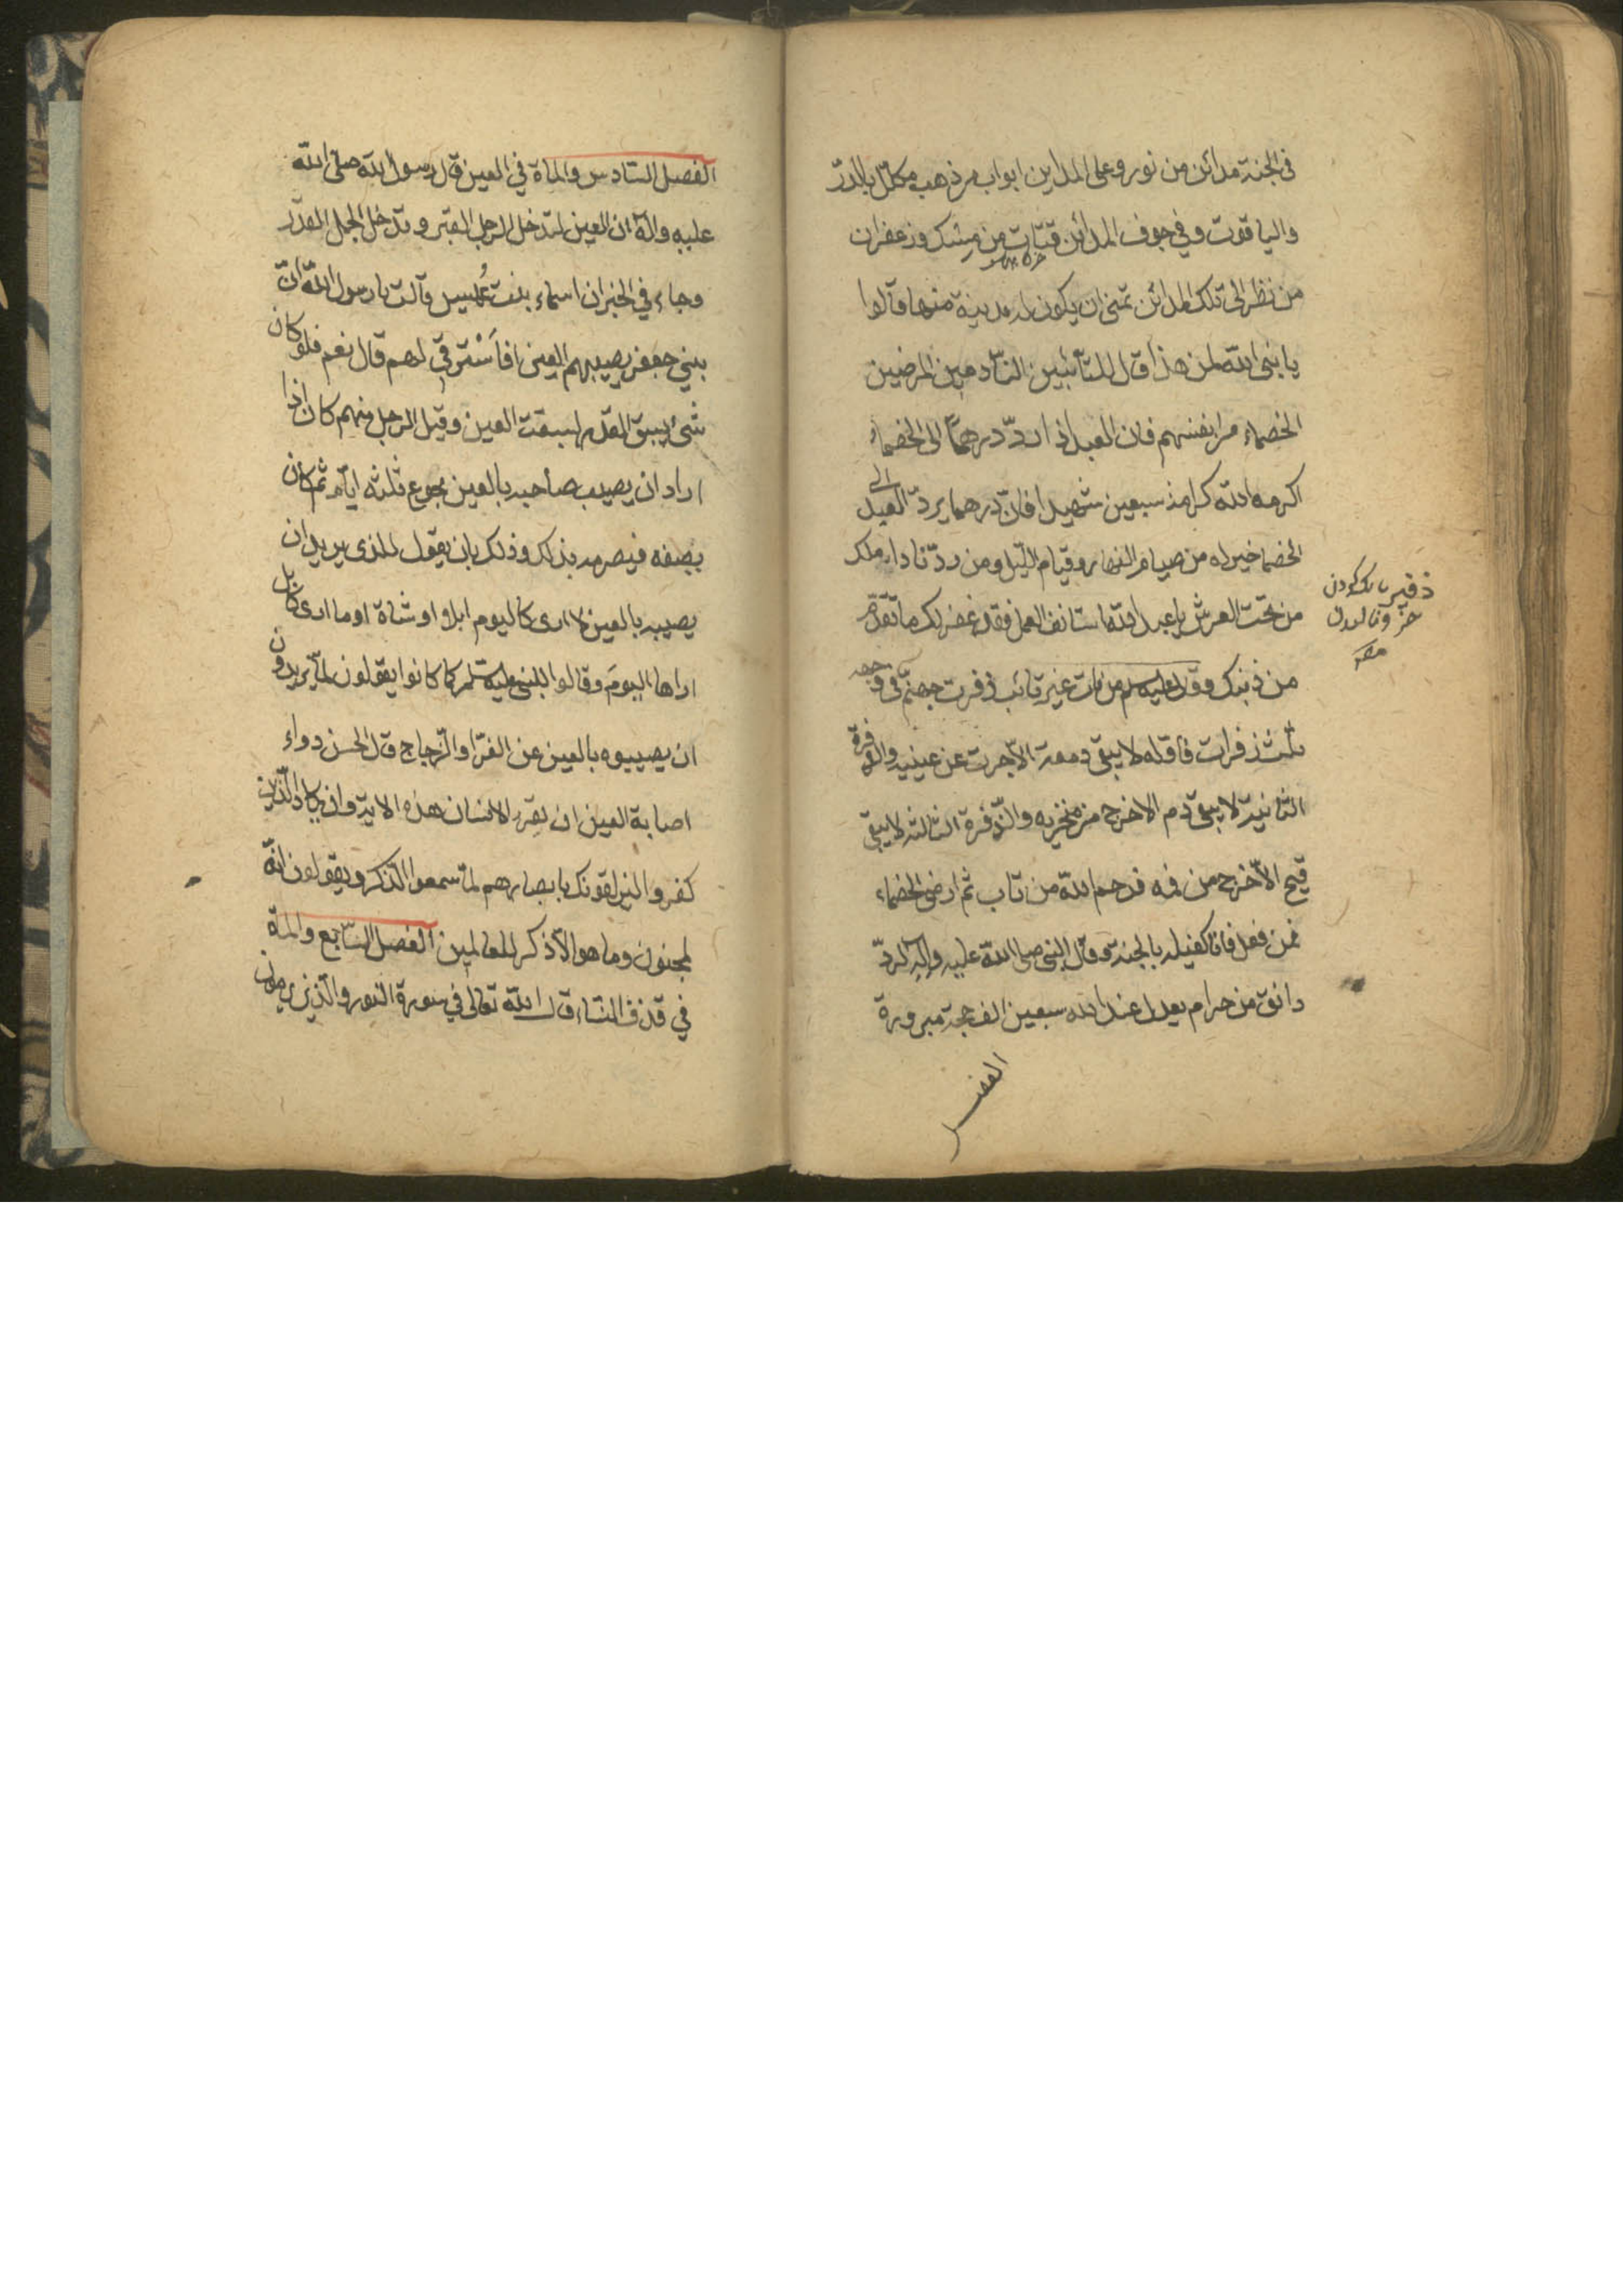 في الجنة مدائن من نور وعلى المداين ابواب من ذهب مكلّل بالدرّ
والياقوت وفي جوف المدائن قبّات من مسك وزعفران
من نظر الى تلك المدائن تمنى ان يكون له مدينة منها قالوا
يا نبى الله لمن هذا قال للتّائبين النّادمين المرضين
الخصماء من انفسهم فان العبد اذا ردّ درهماً الى الخصماء
اكرمه الله كرامة سبعين شهيدا فانّ درهما يردّ العبد الى
الخصما خير له من صيام النهار وقيام اللّيل ومن ردّ ناداه ملك
من تحت العرش يا عبد الله استانف العمل فقد غفر لك ما تقدّم
من ذنبك وقال عليه السلم من مات غير تائب زفرت جهنّم في وجهه
ثلث زفرات فاوله لا يبقى دمعة الاّ جرت عن عينيه والزفرة
الثانية لا يبقى دم الا خرج من منخريه والزّفرة الثالثة لا يبقى
قيح الاّ خرج من فمه فرحم الله من تاب ثم ارضى الخصماء
فمن فعل فانا كفيله بالجنة وقال النبى صلى الله عليه وآله لردّ
دانق من حرام يعدل عند الله سبعين الف حجة مبرورة
الفصل
الفصل السّادس والماة في العين قال رسول الله صلى الله
عليه وآله ان العين لتدخل الرجل القبر وتدخل الجمل القدر
وجاء في الخبر ان اسماء بنت عُميس قالت يا رسول الله انّ
بني جعفر يصيبهم العين افاَسْترقي لهم قال نعم فلو كان
شىء يسبق القدر لسبقت العين وقيل الرجل منهم كان اذا
اراد ان يصيب صاحبه بالعين بجوع ثلثة ايّام ثم كان
يصفه فيصرعه بذلك وذلك بان يقول للذى يريد ان
يصيبه بالعين لا ارى كاليوم ابلا او شاة او ما ارى كابل
اراها اليومَ وقالوا للنبى عليه السلم كما كانوا يقولون لما يريدون
ان يصيبوه بالعين عن الفرّا والزّجاج قال الحسن دواء
اصابة العين ان يقرء الانسان هذه الاية وان يكاد الّذين
كفروا ليزلقونك بابصارهم لمّا سمعوا الذّكر ويقولون انّه
لمجنون وما هو الاّ ذكر للعالمين الفصل السّابع والماة
في قذف النساء قال الله تعالى في سورة النور والّذين يرمون